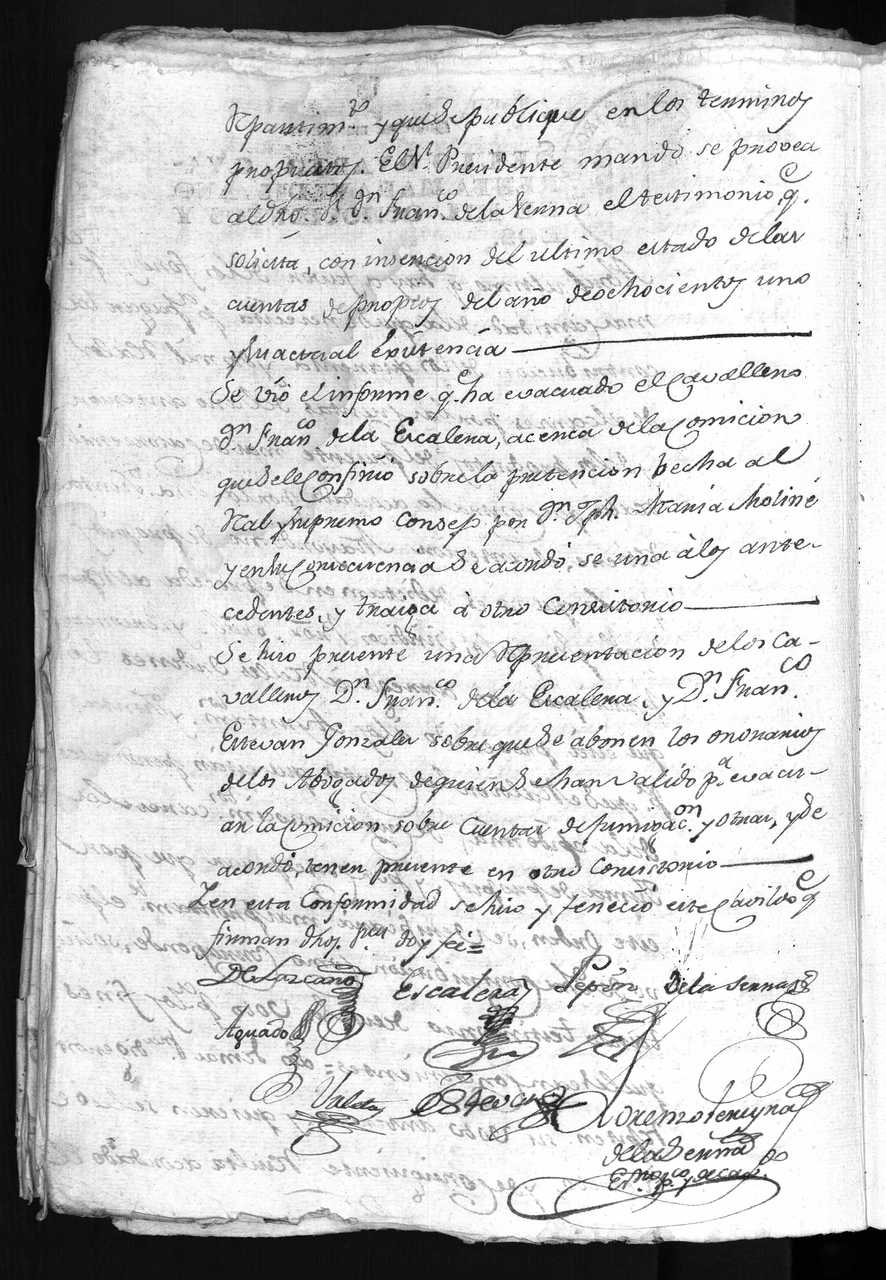 Repartim.to y que se publique en los terminos
propuestos. El S.r Presidente mandó se provea
al dho. S.r D.n Fran.co de la Serna el testimonio q.e
solicita, con insercion del ultimo estado de las
cuentas de propios del año de ochocientos uno
y su actual existencia
Se vio el informe q.e ha evacuado el Cavallero
D.n Fran.co de la Escalera, acerca de la Comicion
que se le confirió sobre la pretencion hecha al
Rl. y Supremo Consejo por D.n Jph. Maria Moliné
y en su consecuencia se acordó, se una à los ante-
cedentes, y traiga à otro Consistorio
Se hizo presente una Representacion de los Ca-
valleros D.n Fran.co de la Escalera, y D.n Fran.co
Estevan Gonzalez sobre que se abonen los onorarios
de los Abogados de quienes se han valido p.a evacu-
ar la comicion sobre Cuentas de fumigac.on y otras, y se
acordó, tener presente en otro Consistorio
Y en esta Conformidad se hizo y feneció este Cavildo q.e
firman dhos. S.res doy fe=
De Lazcano Escalera Pepin De la Serna
Aguado
Valdes Estevan
Lorenzo Pereyra
de la Serna
Es.no p.co y de Cav.